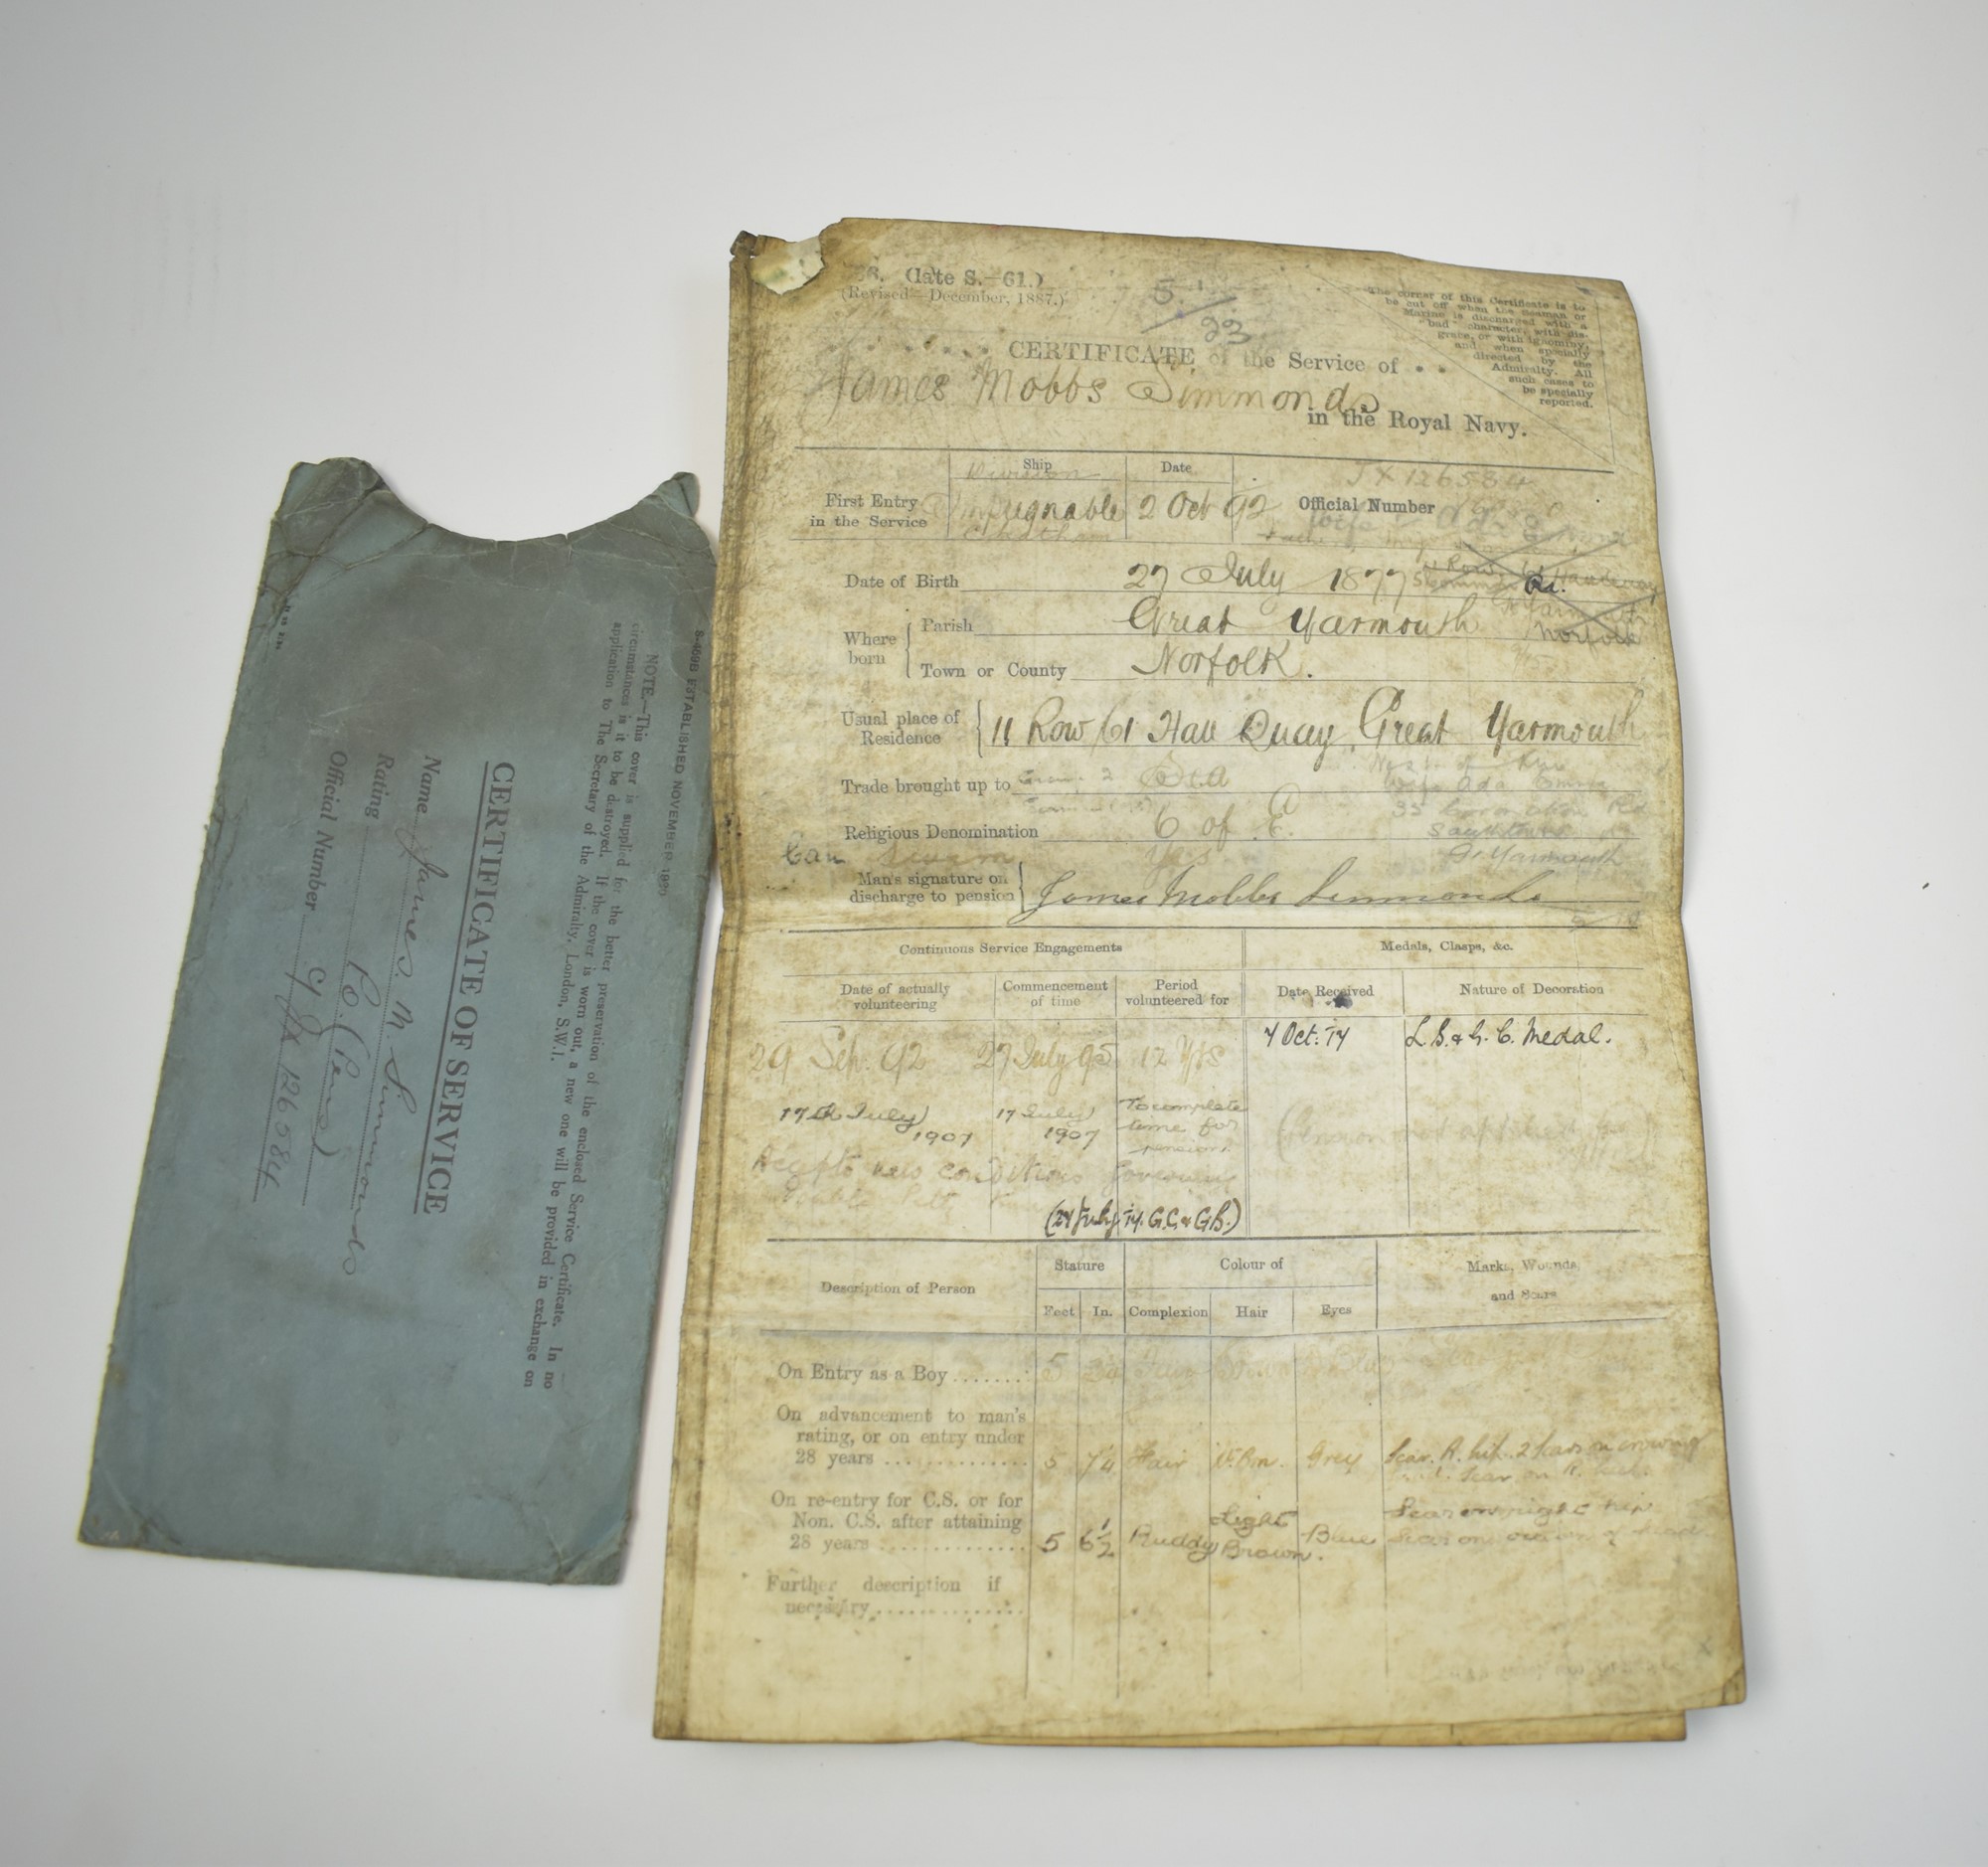 S-459B ESTABLISHED NOVEMBER 1920
NOTE.—This cover is supplied for the better preservation of the enclosed Service Certificate. In no
circumstances is it to be destroyed. If the cover is worn out, a new one will be provided in exchange on
application to The Secretary of the Admiralty, London, S.W.1.
CERTIFICATE OF SERVICE
Name James. M. Simmonds
Rating Po. (Pens)
Official Number JX 126584
(late S.—61.)
(Revised—December, 1887.)
5
23
The corner of this Certificate is to
be cut off when the Seaman or
Marine is discharged with a
"bad" character, with dis-
grace, or with ignominy,
and when specially
directed by the
Admiralty. All
such cases to
be specially
reported.
CERTIFICATE of the Service of
James Mobbs Simmonds
in the Royal Navy.
Ship
Division
Date
JX 126584
First Entry
in the Service
Impregnable
Chatham
2 Oct 92
Official Number
Date of Birth 27 July 1877
Rd.
Where born
Parish Great Yarmouth
Norfolk
Town or County Norfolk.
Usual place of
Residence
11 Row 61 Hall Quay Great Yarmouth
Trade brought up to Sea
Wife Ada
33 Coronation Rd
Religious Denomination C of E.
Southtown
Can Swim Yes
Gt Yarmouth
Man's signature on
discharge to pension
James Mobbs Simmonds
Continuous Service Engagements
Medals, Clasps, &c.
Date of actually
volunteering
Commencement
of time
Period
volunteered for
Date Received
Nature of Decoration
29 Sep. 92 27 July 95 12 Yrs
4 Oct: 14 L.S. & G. C. Medal.
17th July 1907
17 July 1907
To complete
time for
pension
(Pension not applied
Accepts new conditions governing
(24 July 14. G.C. & G.B.)
Description of Person
Stature
Colour of
Marks, Wounds,
and Scars
Feet In. Complexion Hair Eyes
On Entry as a Boy 5
On advancement to man's
rating, or on entry under
28 years
5 Fair Grey
Scar. R. hip. 2 Scars on crown of
On re-entry for C.S. or for
Non. C.S. after attaining
28 years
5 6½ Ruddy Light Brown. Blue
Scar on right hip
Scar on crown of head
Further description if
necessary